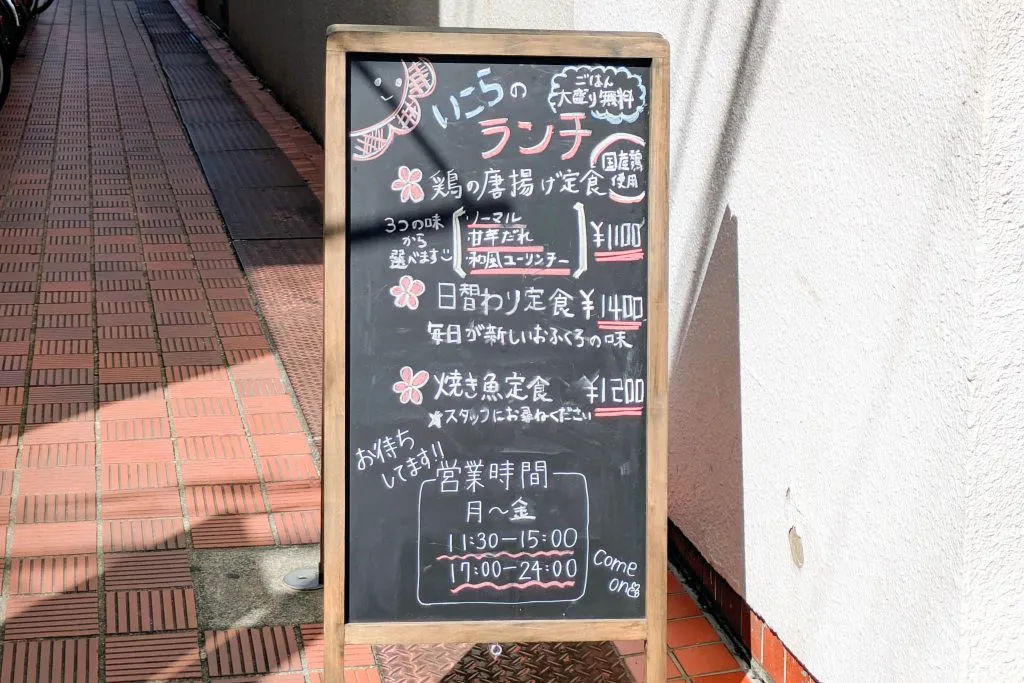 いこらの
ランチ
ごはん
大盛り無料
鶏の唐揚げ定食
国産鶏
使用
3つの味
から
選べます
ノーマル
甘辛だれ
和風ユーリンチー
¥1100
日替わり定食 ¥1400
毎日が新しいおふくろの味
焼き魚定食 ¥1200
★スタッフにお尋ねください
お待ち
してます!!
営業時間
月〜金
11:30-15:00
17:00-24:00
Come
on